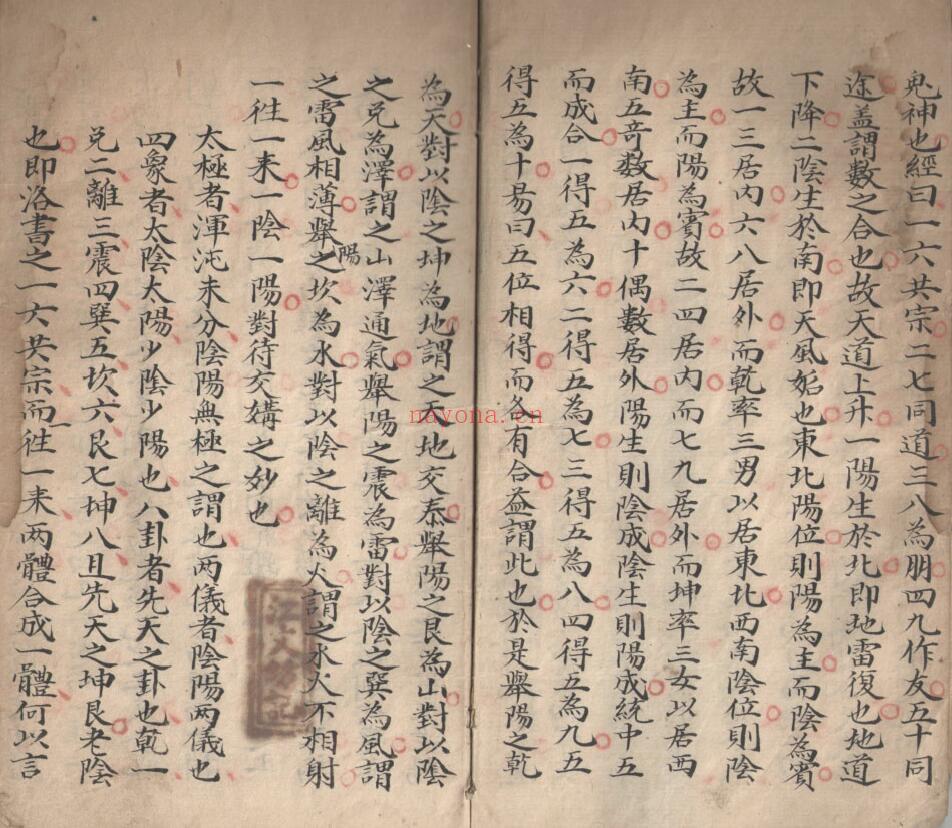 鬼神也經曰一六共宗二七同道三八為朋四九作友五十同
途盖謂數之合也故天道上升一陽生於北即地雷復也地道
下降二陰生於南即天風姤也東北陽位則陽為主而陰為賓
故一三居内六八居外而乾率三男以居東北西南陰位則陰
為主而陽為賓故二四居内而七九居外而坤率三女以居西
南五竒數居内十偶數居外陽生則陰成陰生則陽成統中五
而成合一得五為六二得五為七三得五為八四得五為九五
得五為十易曰五位相得而各有合益謂此也於是舉陽之乾
為天對以陰之坤為地謂之天地交泰舉陽之艮為山對以陰
之兑為澤謂之山澤通氣舉陽之震為雷對以陰之巽為風謂
之雷風相薄舉陽之坎為水對以陰之離為火謂之水火不相射
一徃一来一陰一陽對待交媾之妙也
太極者渾沌未分陰陽無極之謂也两儀者陰陽两儀也
四象者太陰太陽少陰少陽也八卦者先天之卦也乾一
兑二離三震四巽五坎六艮七坤八且先天之坤艮老陰
也即洛書之一六共宗而一徃一来两體合成一體何以言
nayona.cn